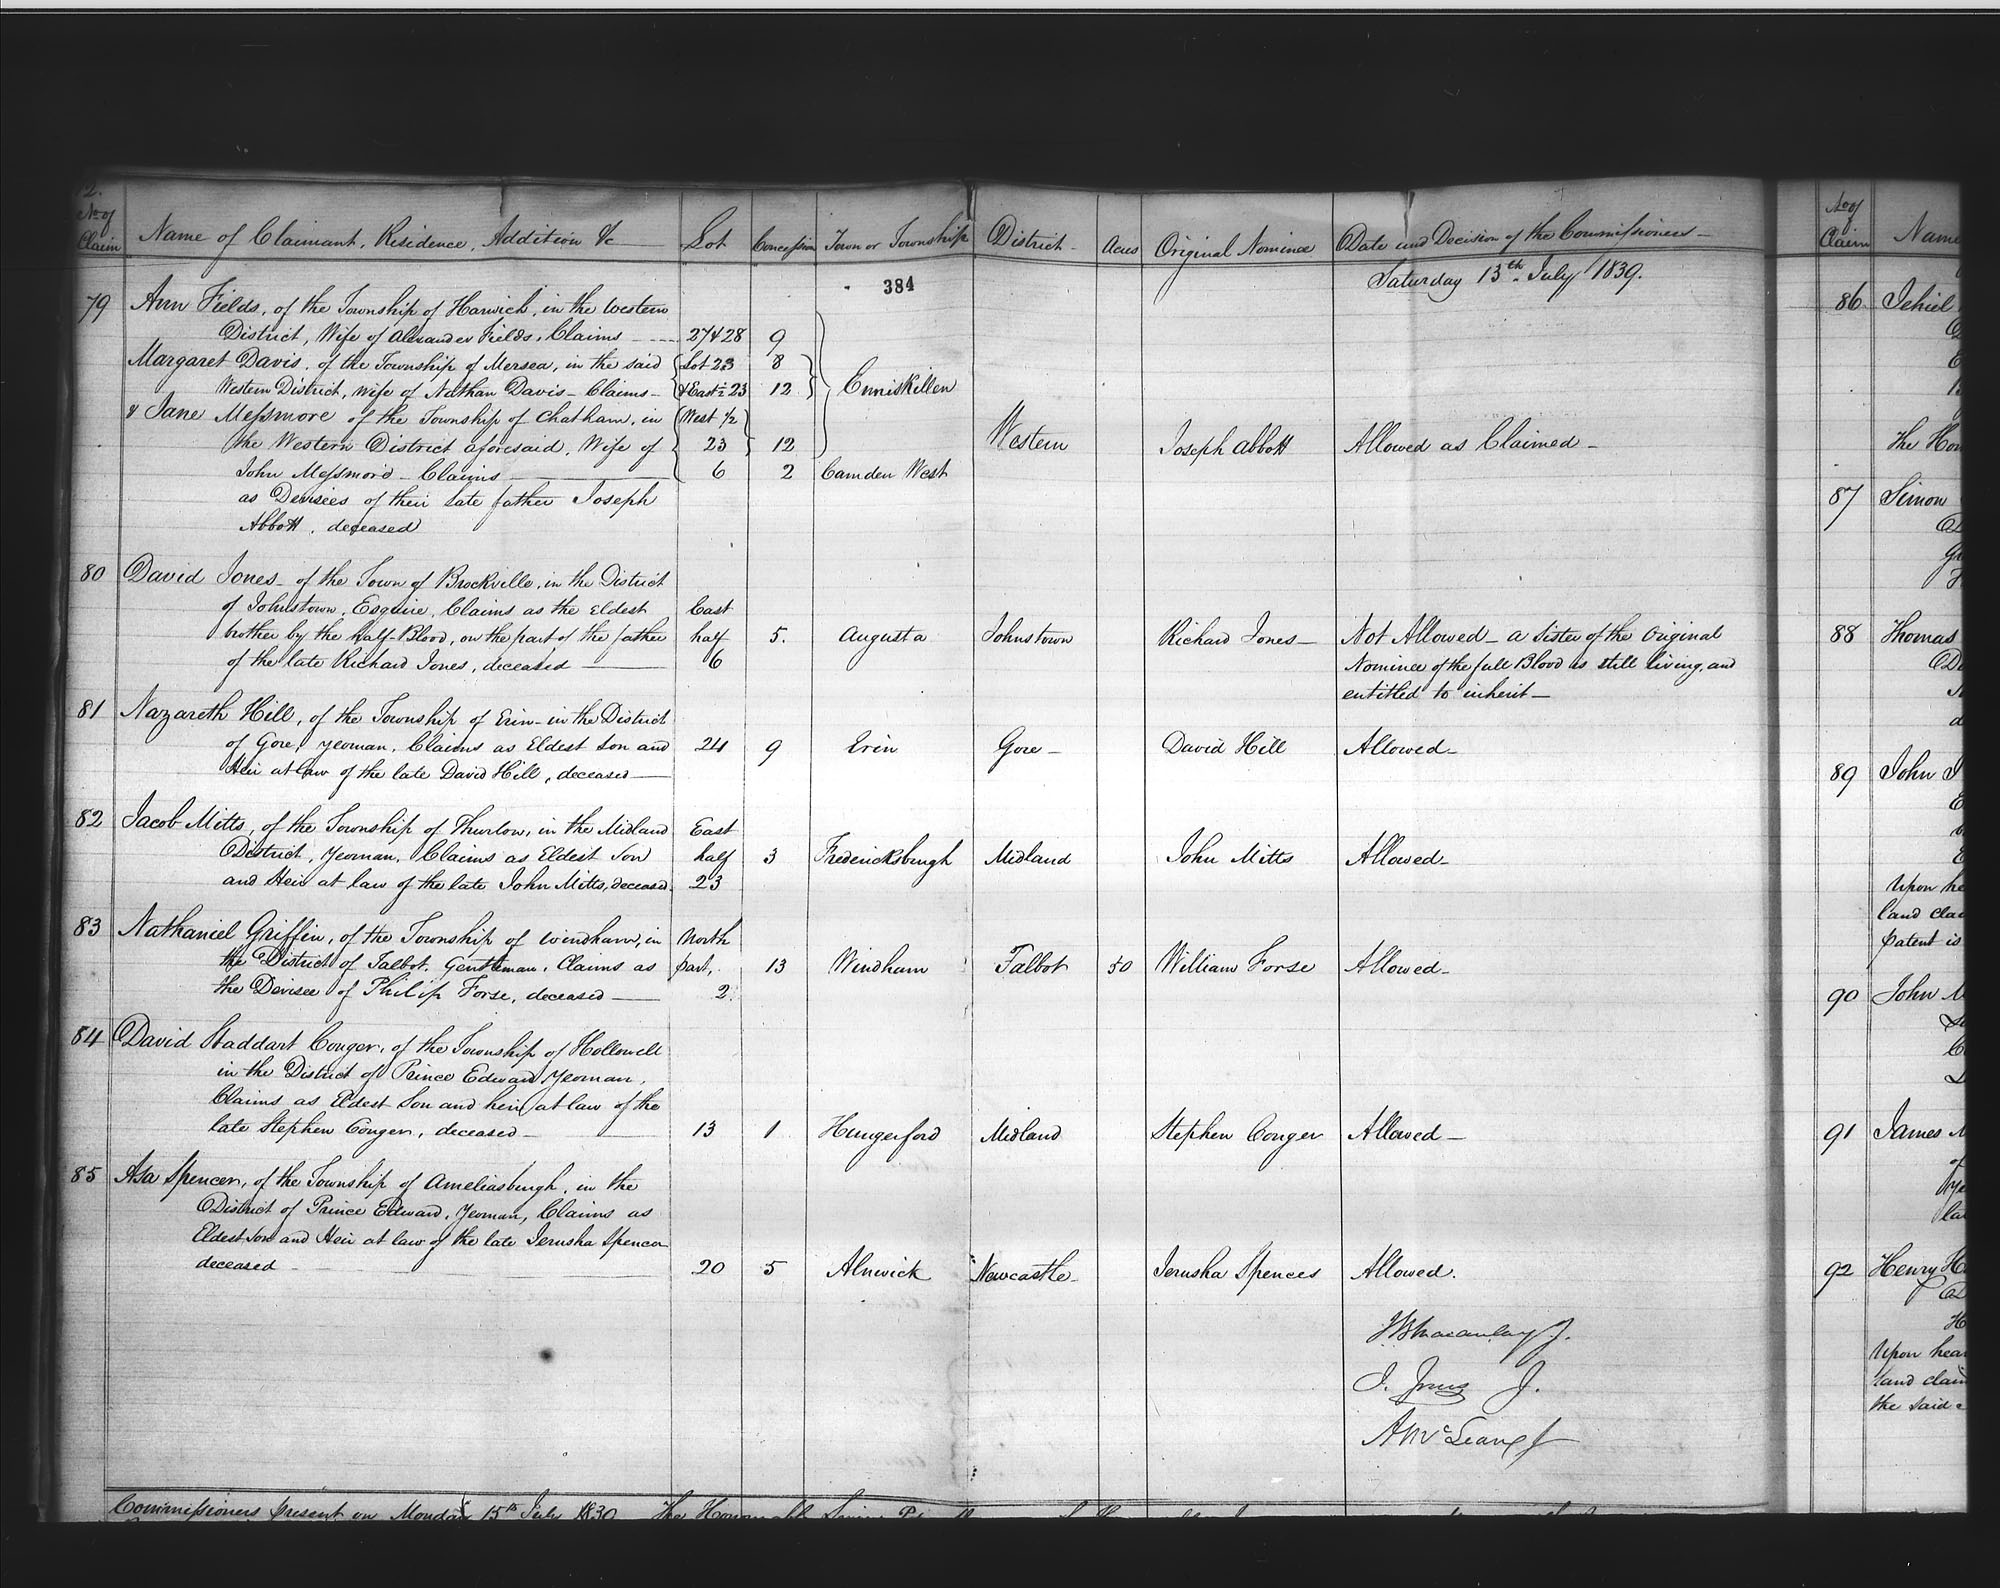 2.
No of Claim
Name of Claimant, Residence, Addition &c
Lot
Concession
Town or Township
District
Acres
Original Nominee
Date and Decision of the Commissioners
384
Saturday 13th July 1839.
79
Ann Fields, of the Township of Harwich, in the Western
District, Wife of Alexander Fields, Claims 27 & 28 9
Margaret Davis, of the Township of Mersea, in the said {Lot 23 8
Western District, wife of Nathan Davis - Claims - {& East ½ 23 12 } Enniskillen
& Jane Messmore of the Township of Chatham, in {West 1/2
the Western District aforesaid, Wife of 23 12 Western Joseph Abbott Allowed as Claimed -
John Messmore - Claims 6 2 Camden West
as Devisees of their late father Joseph
Abbott, deceased
80 David Jones - of the Town of Brockville, in the District
of Johnstown, Esquire, Claims as the eldest East
brother by the half-Blood, on the part of the father half 5. Augusta Johnstown Richard Jones - Not Allowed - a Sister of the Original
of the late Richard Jones, deceased 6 Nominee of the full Blood is still living, and
entitled to inherit -
81 Nazareth Hill, of the Township of Erin - in the District
of Gore, Yeoman, Claims as Eldest Son and 24 9 Erin Gore - David Hill Allowed -
Heir at law of the late David Hill, deceased
82 Jacob Mitts, of the Township of Thurlow, in the Midland East
District, Yeoman, Claims as Eldest Son half 3 Fredericksburgh Midland John Mitts Allowed -
and Heir at law of the late John Mitts, deceased. 23
83 Nathaniel Griffin, of the Township of Windham, in North
the District of Talbot, Gentleman, Claims as part, 13 Windham Talbot 50 William Forse Allowed -
the Devisee of Philip Forse, deceased 2.
84 David Staddart Conger, of the Township of Hollowell
in the District of Prince Edward Yeoman,
Claims as Eldest Son and heir at law of the
late Stephen Conger, deceased - 13 1 Hungerford Midland Stephen Conger Allowed -
85 Asa Spencer, of the Township of Ameliasburgh, in the
District of Prince Edward, Yeoman, Claims as
Eldest Son and Heir at law of the late Jerusha Spencer
deceased 20 5 Alnwick Newcastle Jerusha Spencer Allowed.
J B Macaulay J.
J. Jones J.
A McLean J
Commissioners present on Monday 15th July 1839 The Honorable
No of Claim
Name
86 Jehiel
The Hon
87 Simon
88 Thomas
89 John
Upon he
land clai
patent is
90 John M
91 James M
92 Henry H
Upon hear
land claim
the said